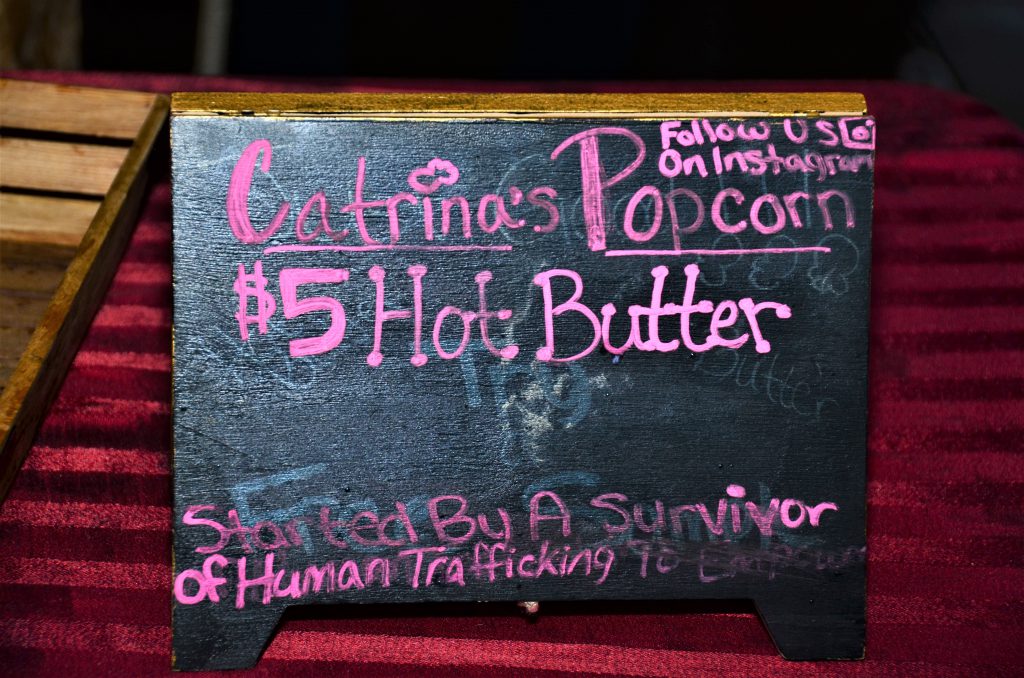 Follow US
On Instagram
Catrina's Popcorn
$5 Hot Butter
Butter
Started By A Survivor
of Human Trafficking To Empower